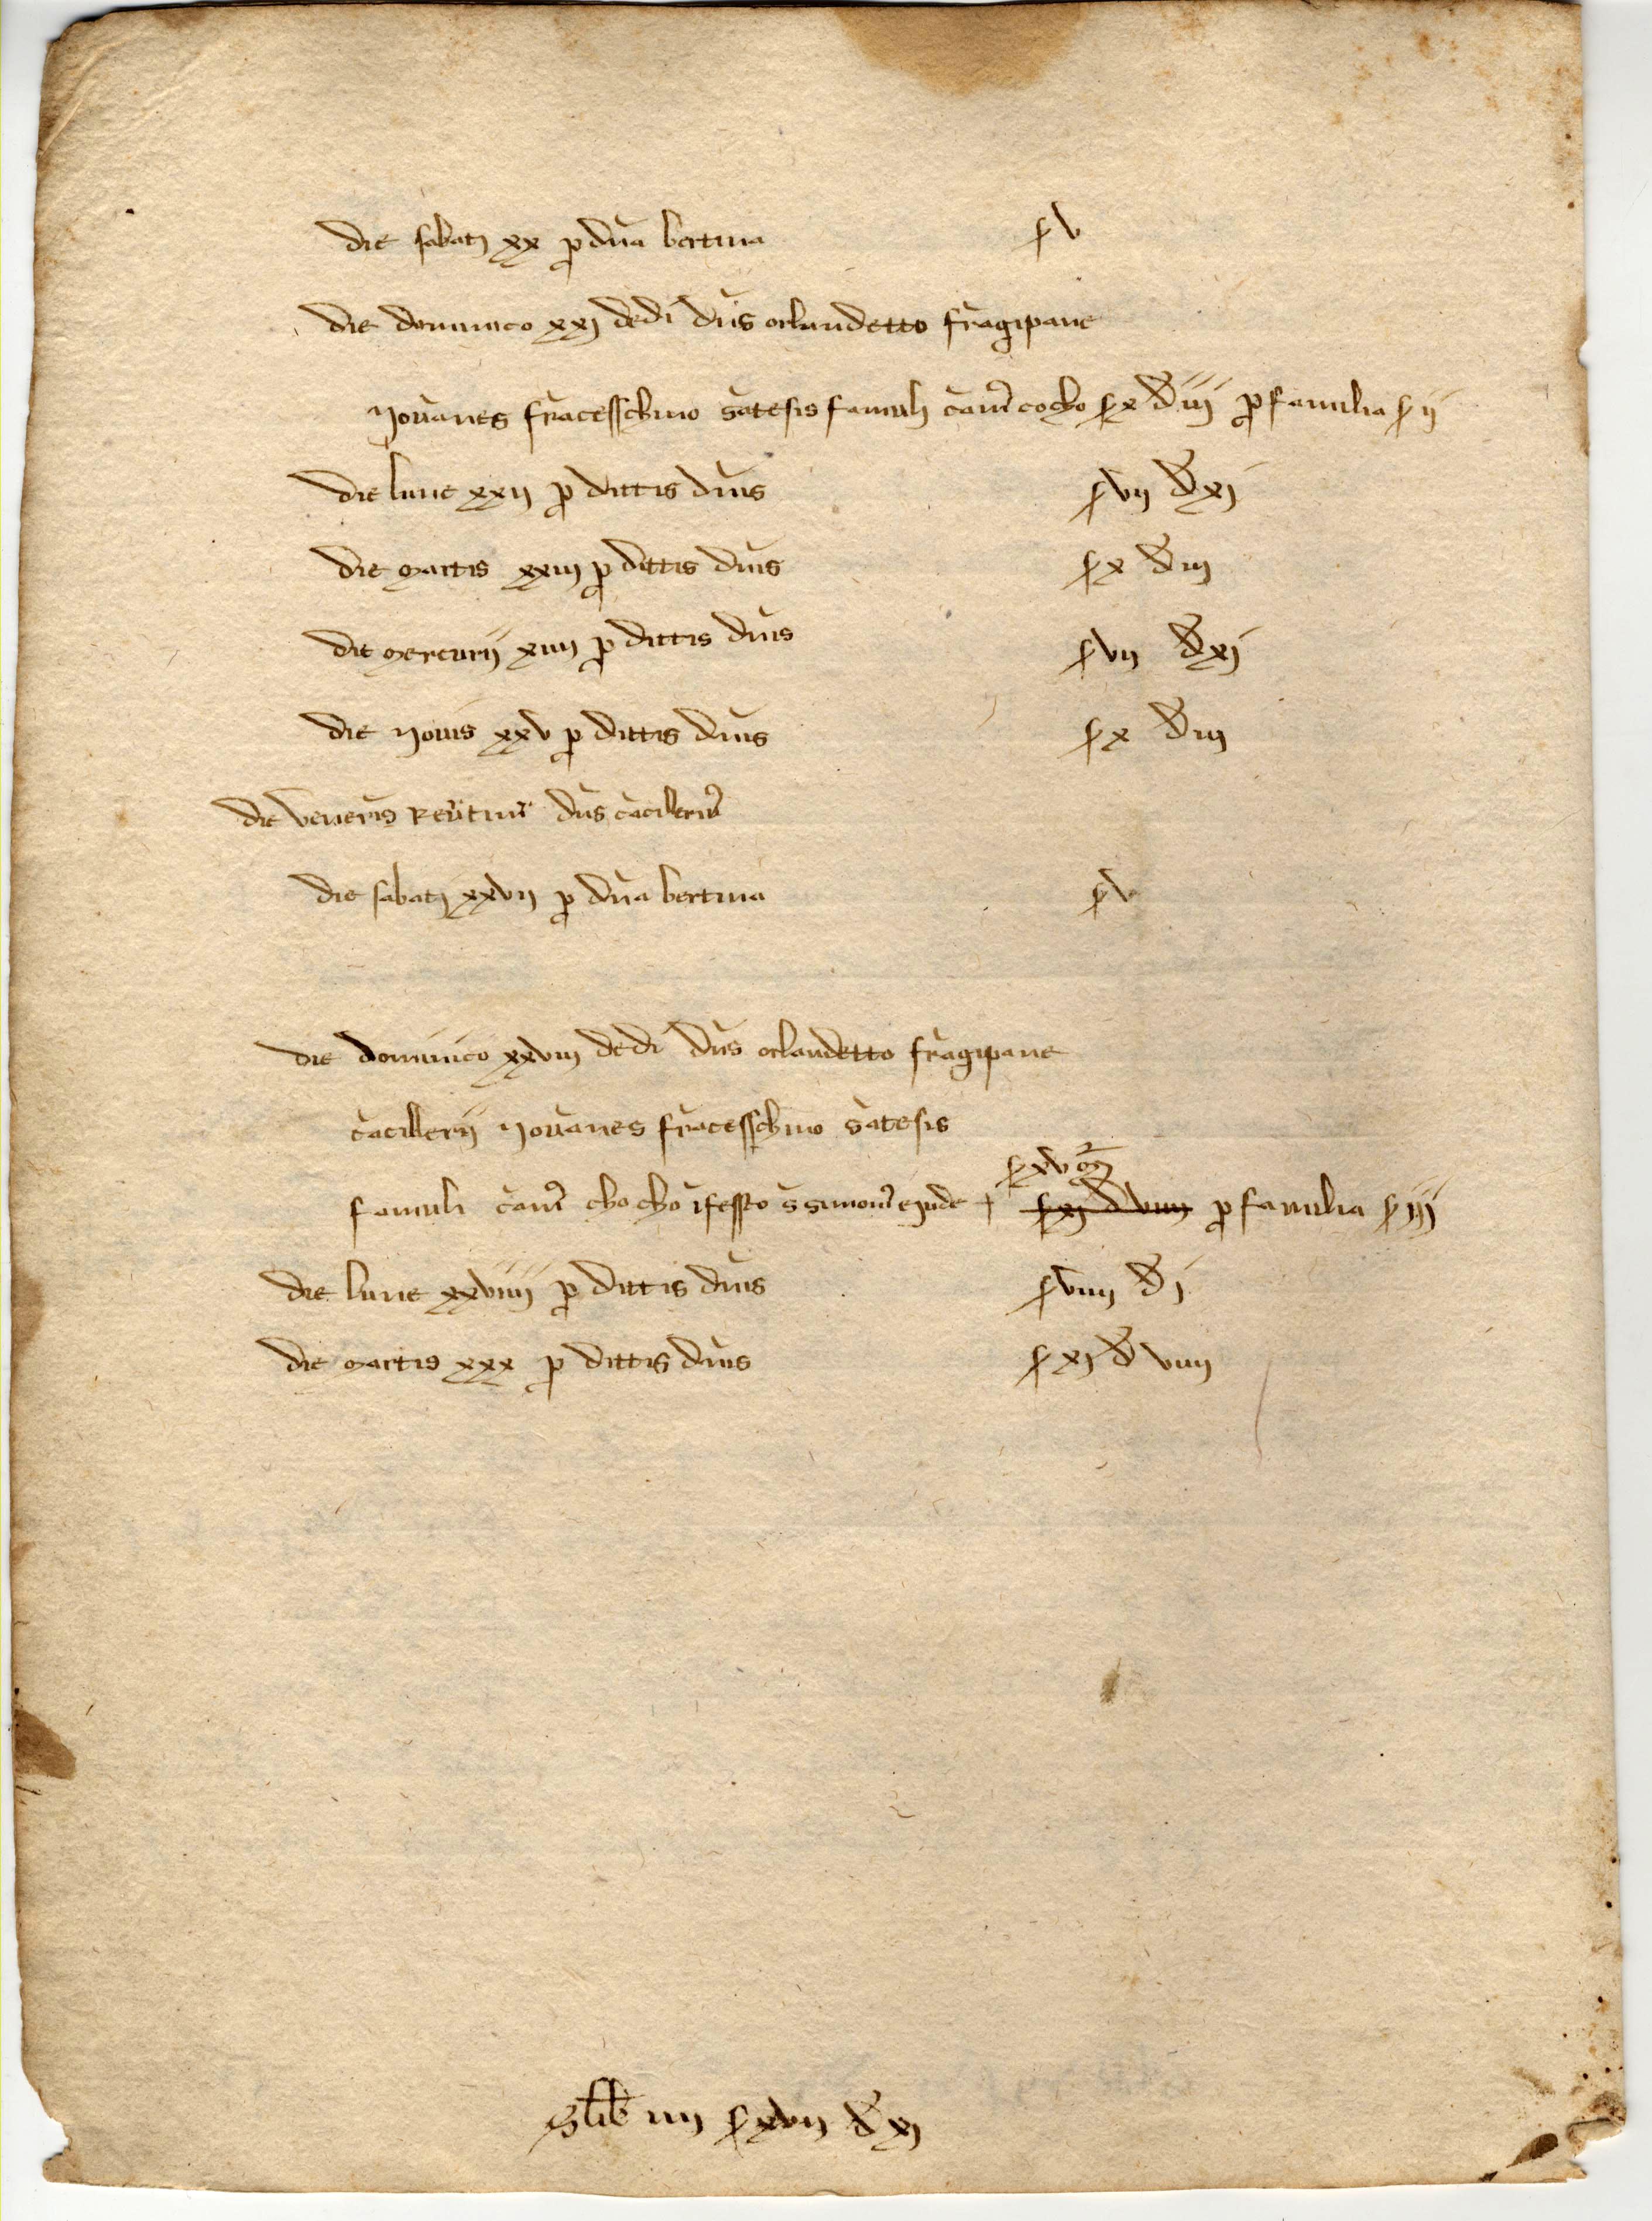 die sabatj xx p dña bertina ß v
die dominico xxj dedi dñis orlandetto frãgipane
Joũanes frãcesschino sãtesis famulj cam̃ cocho ß x d̃ iij p familia ß ij
die lune xxij p dittis dñis ß vij d̃ xj
die martis xxiij p dittis dñis ß x d̃ iij
die mercurij xiiij p dittis dñis ß vij d̃ xj
die Jouis xxv p dittis dñis ß x d̃ iij
die veneris dñs cãcilleriũ
die sabatj xxvij p dña bertina ß v
die dominico xxviij dedi dñis orlandetto frãgipane
cãcillerij Joũanes frãcesschino sãtesis
ß xv
famuli cam̃ chocho ĩ festo s simonĩ ejude + ß xj d viiij p familia ß iij
die lune xxviiij p dittis dñis ß viiij d̃ j
die martis xxx p dittis dñis ß xj d̃ viiij
S lib iiij ß xvij d̃ xj